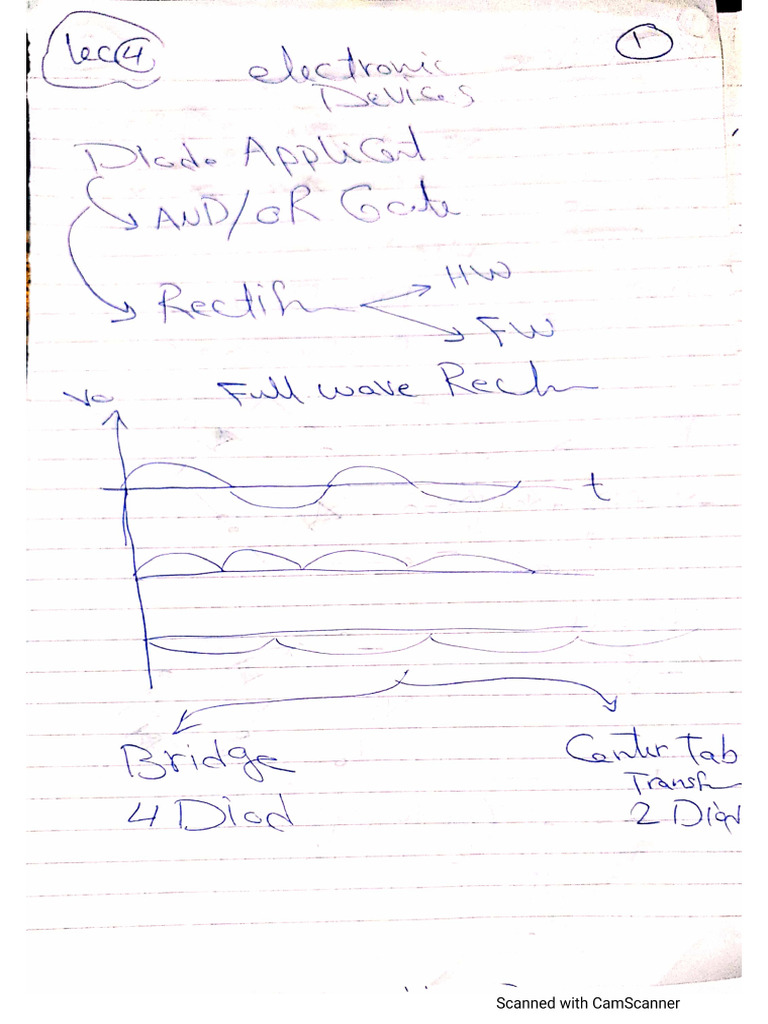 Lec 4
1
electronic
Devices
Diode Applicat
AND/OR Gate
HW
Rectifi
FW
Vo
Full wave Rect
t
Bridge
Center Tab
Transf
4 Diod
2 Diod
Scanned with CamScanner